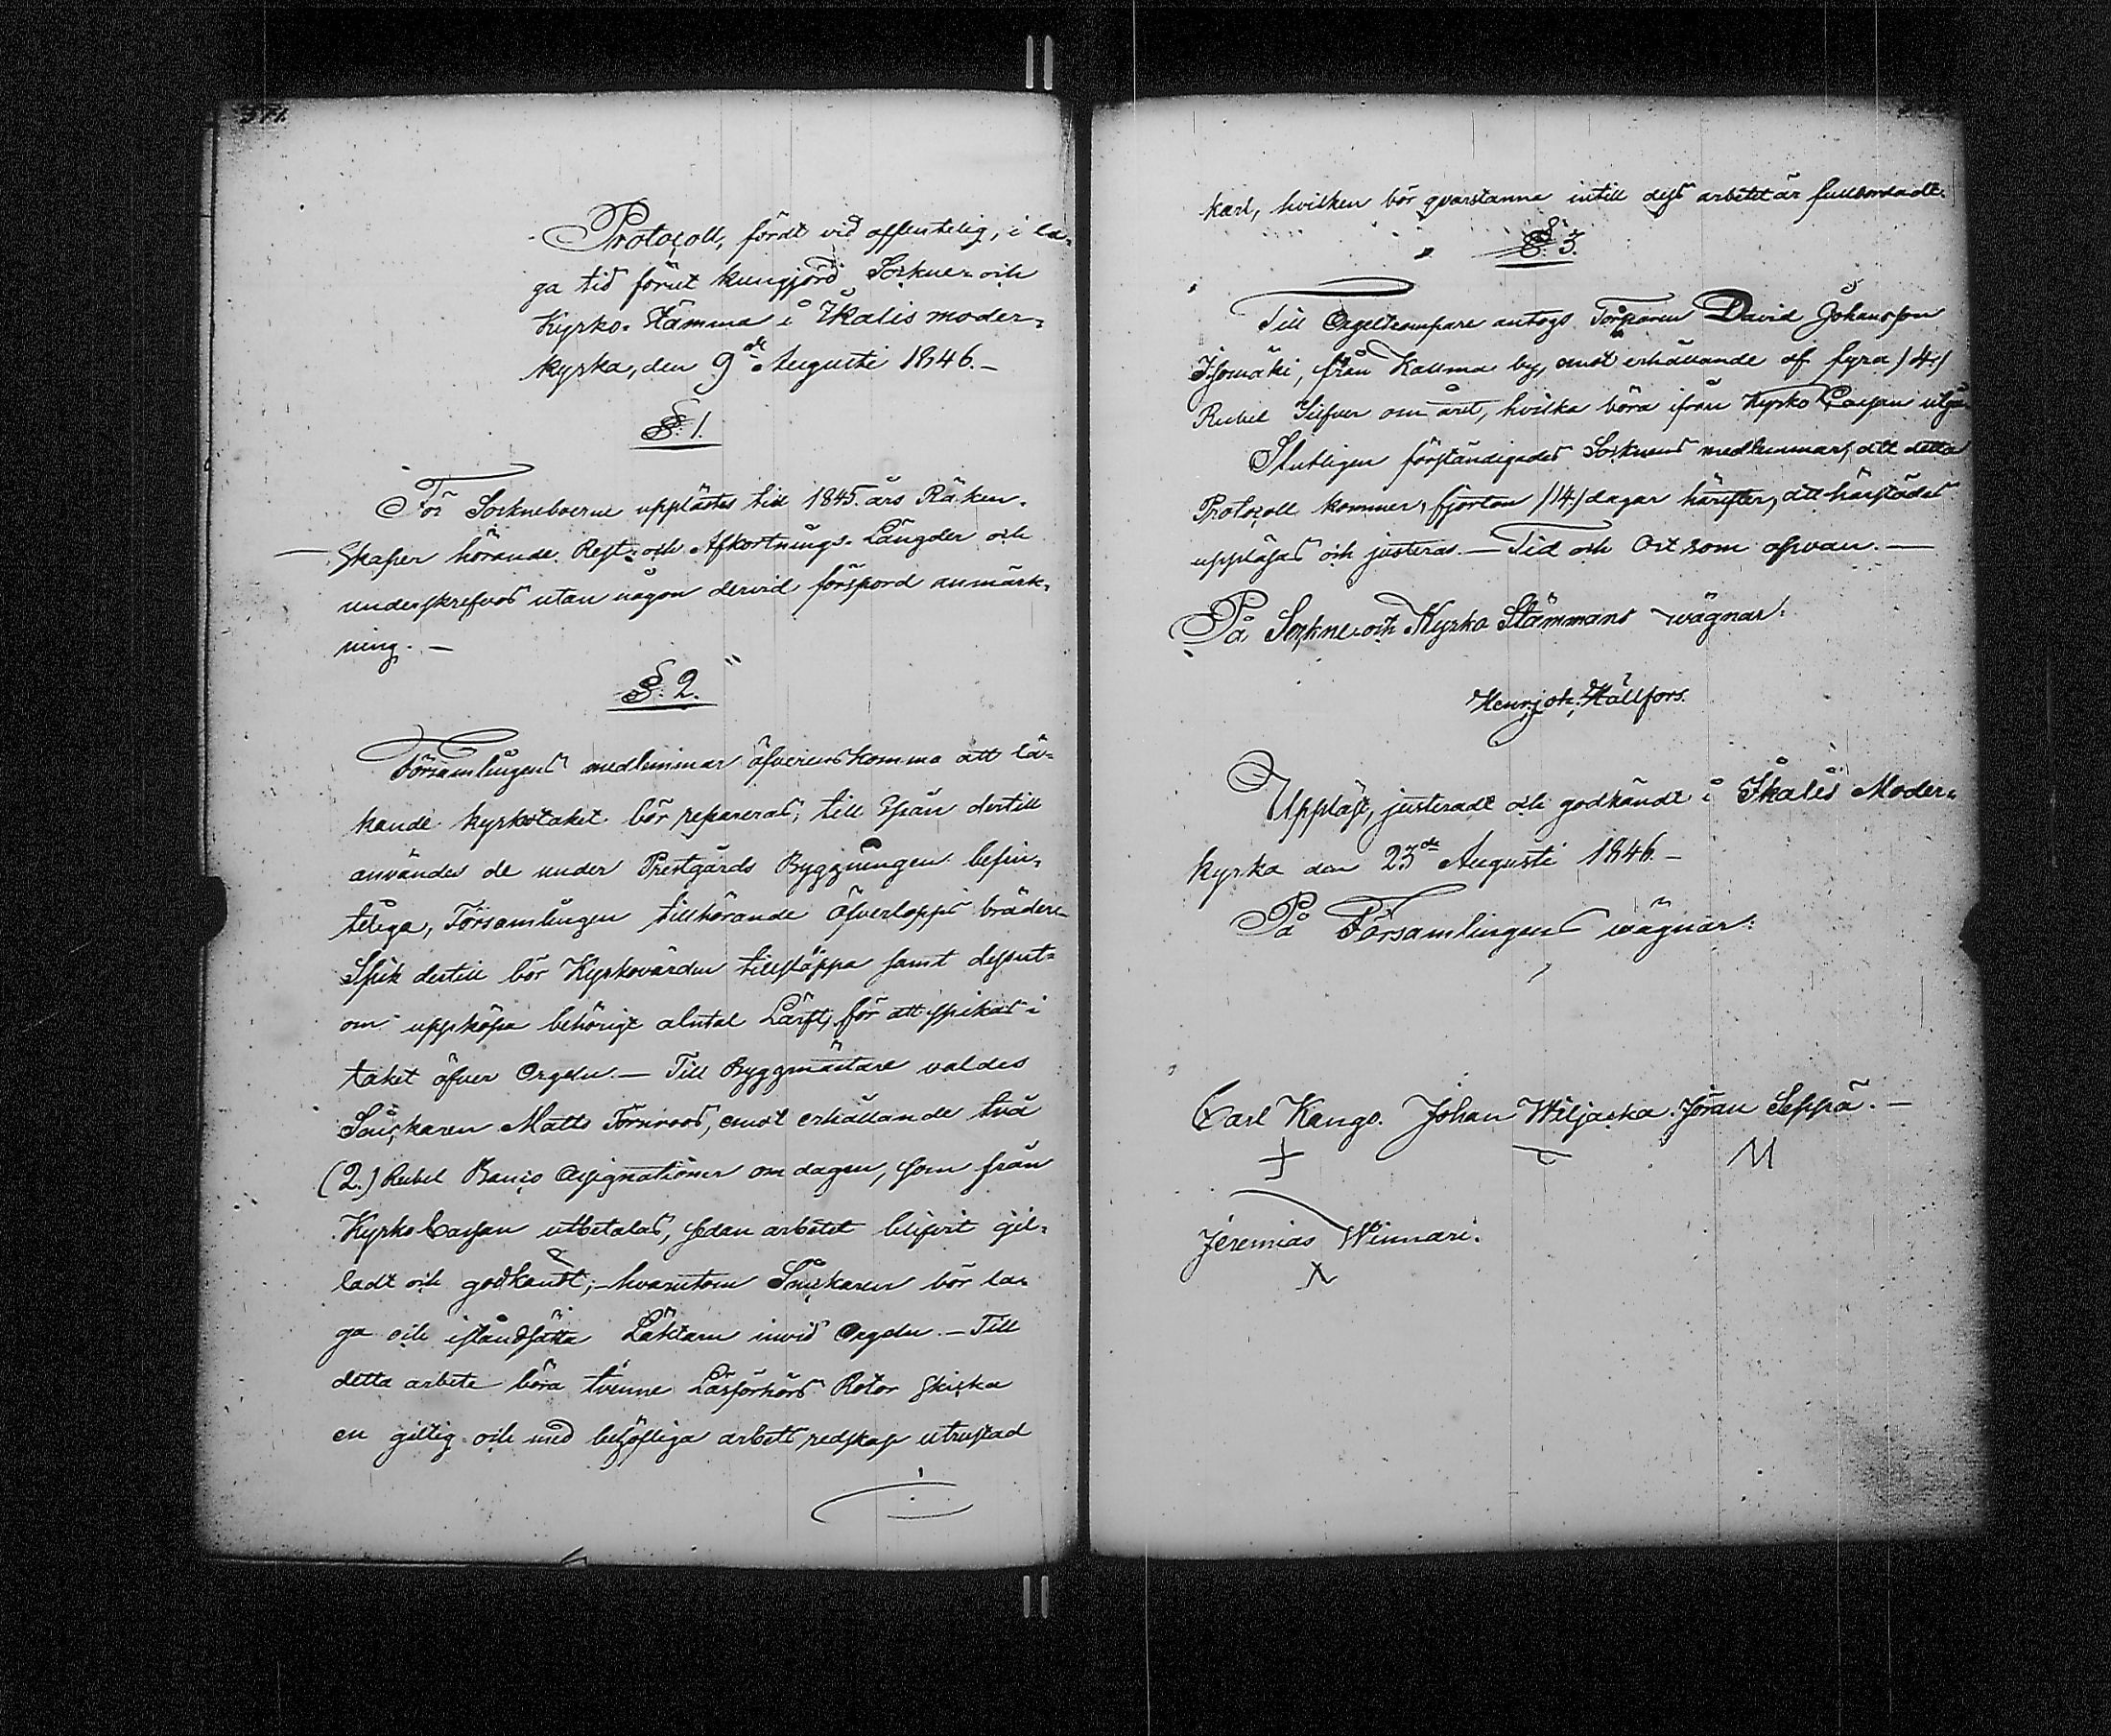 371.
Protocoll, fördt vid offentelig, i la-
ga tid förut kungjord Sockne- och
Kyrko-Stämma i Ikalis moder-
kyrka, den 9de Augusti 1846.-
§. 1.
För Sockneboerne upplästes till 1845. års Räken-
skaper hörande Rest- och Afkortnings-Längder och
underskrefvos utan någon dervid förspord anmärk-
ning.-
§. 2.
Församlingens medlemmar öfverenskommo att lä-
kande kyrkotaket bör repareras; till Spån dertill
användes de under Prestgårds Byggningen befin-
teliga, Församlingen tillhörande öfverlopps bräder.
Spik dertill bör Kyrkovärden tillsläppa samt dessut-
om uppköpa behörigt alntal Lärft, för att spikas i
taket öfver Orgeln.- Till Byggmästare valdes
Snickaren Matts Törnroos, emot erhållande två
(2.) Rubel Banco Assignationer om dagen, som från
Kyrko Cassan utbetalas, sedan arbetet blifvit gil-
ladt och godkändt;- hvarutom Snickaren bör la-
ga och iståndsätta Läktarn invid Orgeln.- Till
detta arbete böra tvenne Läsförhörs Rotor skicka
en giltig och med behöfliga arbets redskap utrustad
karl, hvilken bör qvarstanna intill dess arbetet är fullbordadt.
§. 3.
Till Orgeltrampare antogs Torparen David Johansson
Isomäki, från Kallma by, emot erhållande af fyra /4./
Rubel Silfver om året, hvilka böra ifrån Kyrko Cassan utgå.
Slutligen förständigades Socknens medlemmar, att detta
Protocoll kommer, fjorton /14./ dagar härefter, att härstädes
uppläsas och justeras.- Tid och Ort som ofvan.-
På Sockne- och Kyrko Stämmans vägnar:
Henr: Joh: Hällfors.
Uppläst, justeradt och godkändt i Ikalis Moder-
kyrka den 23de Augusti 1846.-
På Församlingens vägnar:
Carl Kango. Johan Wiljaska. Jöran Seppä.-
Jeremias Winnari.